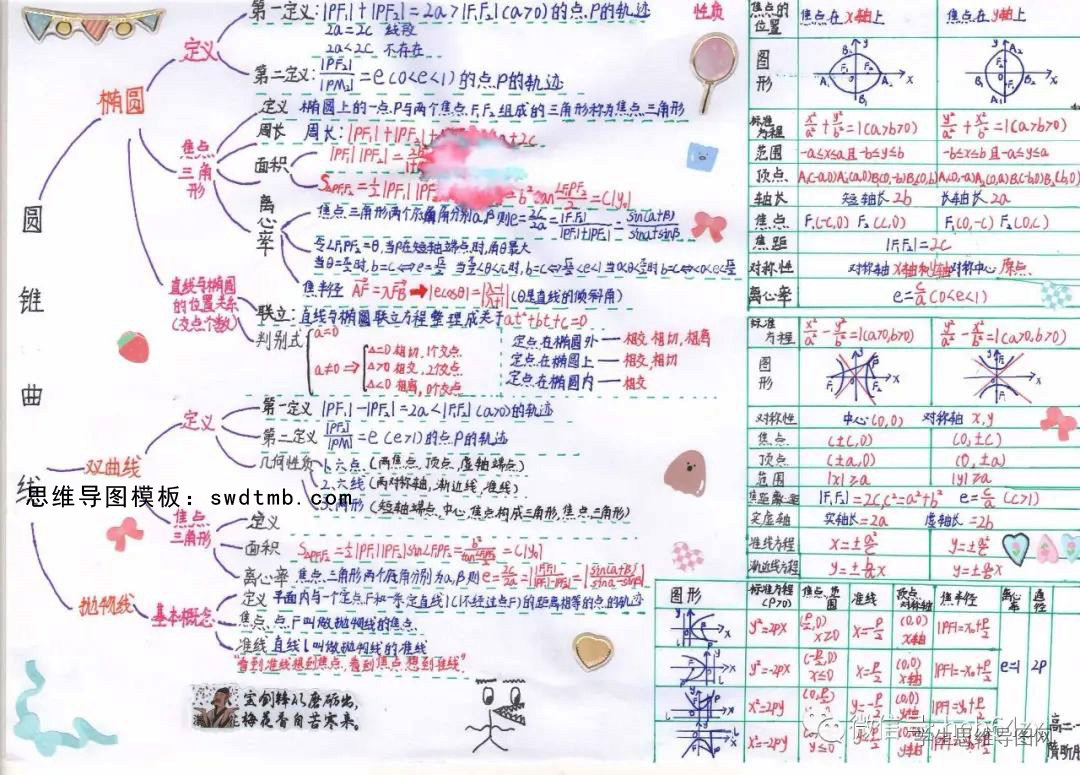 圆锥曲线
椭圆
定义
第一定义: |PF₁|+|PF₂|=2a>|F₁F₂|(a>0)的点P的轨迹
2a=2c 线段
2a<2c 不存在
第二定义: |PF₂|/|PM₂|=e(0<e<1)的点P的轨迹
焦点三角形
定义 椭圆上的一点P与两个焦点F₁F₂组成的三角形称为焦点三角形
周长 周长: |PF₁|+|PF₂|+ +2c
面积 |PF₁||PF₂|=
S△PF₁F₂=½|PF₁||PF =b²tan∠F₁PF₂/2=c|y₀|
离心率
焦点三角形两个底角分别α,β则e=2c/2a=|F₁F₂|/|PF₁|+|PF₂|=sin(α+β)/sinα+sinβ
令∠F₁PF₂=θ,当P在短轴端点时,角θ最大
焦半径 AF=λFB ➡ |ecosθ|=|λ-1/λ+1|(θ是直线的倾斜角)
直线与椭圆的位置关系(交点个数)
联立: 直线与椭圆联立方程整理成关于at²+bt+c=0
判别式
a=0
a≠0 ⇒
Δ=0 相切,1个交点
Δ>0 相交,2个交点
Δ<0 相离,0个交点
定点在椭圆外——相交,相切,相离
定点在椭圆上——相交,相切
定点在椭圆内——相交
双曲线
定义
第一定义 |PF₁|-|PF₂|=2a<|F₁F₂|(a>0)的轨迹
第二定义 |PF₂|/|PM|=e(e>1)的点P的轨迹
几何性质 1.六点(两焦点,顶点,虚轴端点)
2.六线(两对称轴,渐近线,准线)
3.两形(短轴端点,中心,焦点构成三角形,焦点三角形)
思维导图模板:swdtmb.com
焦点三角形
定义
面积 S△PF₁F₂=½|PF₁||PF₂|sin∠F₁PF₂= =c|y₀|
离心率 焦点三角形两个底角分别为α,β则e=2c/2a= =|sin(α+β)/sinα-sinβ|
抛物线
基本概念
定义 平面内与一个定点F和一条定直线l(l不经过点F)的距离相等的点的轨迹
焦点 点F叫做抛物线的焦点
准线 直线l叫做抛物线的准线
"看到准线想到焦点,看到焦点想到准线"
宝剑锋从磨砺出,
梅花香自苦寒来。
性质
焦点的位置 焦点在x轴上 焦点在y轴上
图形
标准方程 x²/a²+y²/b²=1(a>b>0) y²/a²+x²/b²=1(a>b>0)
范围 -a≤x≤a且-b≤y≤b -b≤x≤b且-a≤y≤a
顶点 A₁(-a,0)A₂(a,0)B₁(0,-b)B₂(0,b) A₁(0,-a)A₂(0,a)B₁(-b,0)B₂(b,0)
轴长 短轴长2b 长轴长2a
焦点 F₁(-c,0) F₂(c,0) F₁(0,-c) F₂(0,c)
焦距 |F₁F₂|=2c
对称性 对称轴x轴和y轴对称中心原点
离心率 e=c/a(0<e<1)
标准方程 x²/a²-y²/b²=1(a>0,b>0) y²/a²-x²/b²=1(a>0,b>0)
图形
对称性 中心(0,0) 对称轴x,y
焦点 (±c,0) (0,±c)
顶点 (±a,0) (0,±a)
范围 |x|≥a |y|≥a
|F₁F₂|=2c,c²=a²+b² e=c/a(c>1)
实虚轴 实轴长=2a 虚轴长=2b
准线方程 x=±a²/c y=±a²/c
渐近线方程 y=±b/a x y=±a/b x
图形 标准方程(P>0) 焦点,范围 准线 顶点对称轴 焦半径 离心率 通径
y²=2px (p/2,0) x≥0 x=-p/2 (0,0) x轴 |PF|=x₀+p/2
y²=-2px (-p/2,0) x≤0 (0,0) x轴 |PF|=-x₀+p/2 e=1 2P
x²=2py (0,p/2) y=-p/2 (0,0) y轴 |PF|=y₀+p/2
x²=-2py y≤0 y轴
微信号:
学生思维导图网
高二